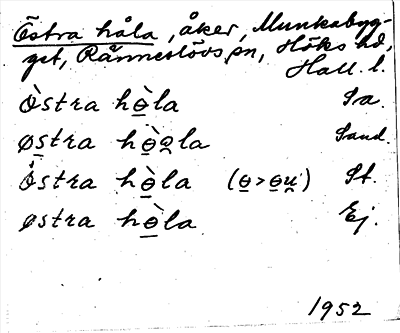 Östra håla, åker, Munkabyg-
get, Rännestövs sn, Höks hd,
Hall. l.
Òstra hө̠̀la Sa.
øs̠tra hө̠̀ə̠la Sand.
Ö̀stra hө̠̀la (ө̠>ө̠u̠) St.
østra hө̠̀la Ej.
1952